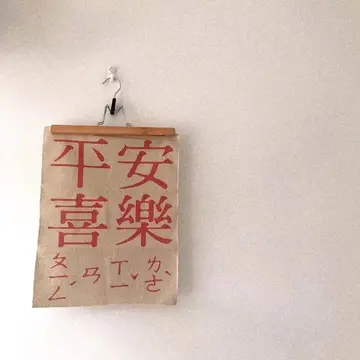 平安
喜樂
ㄆㄧㄥˊ ㄢ ㄒㄧˇ ㄌㄜˋ